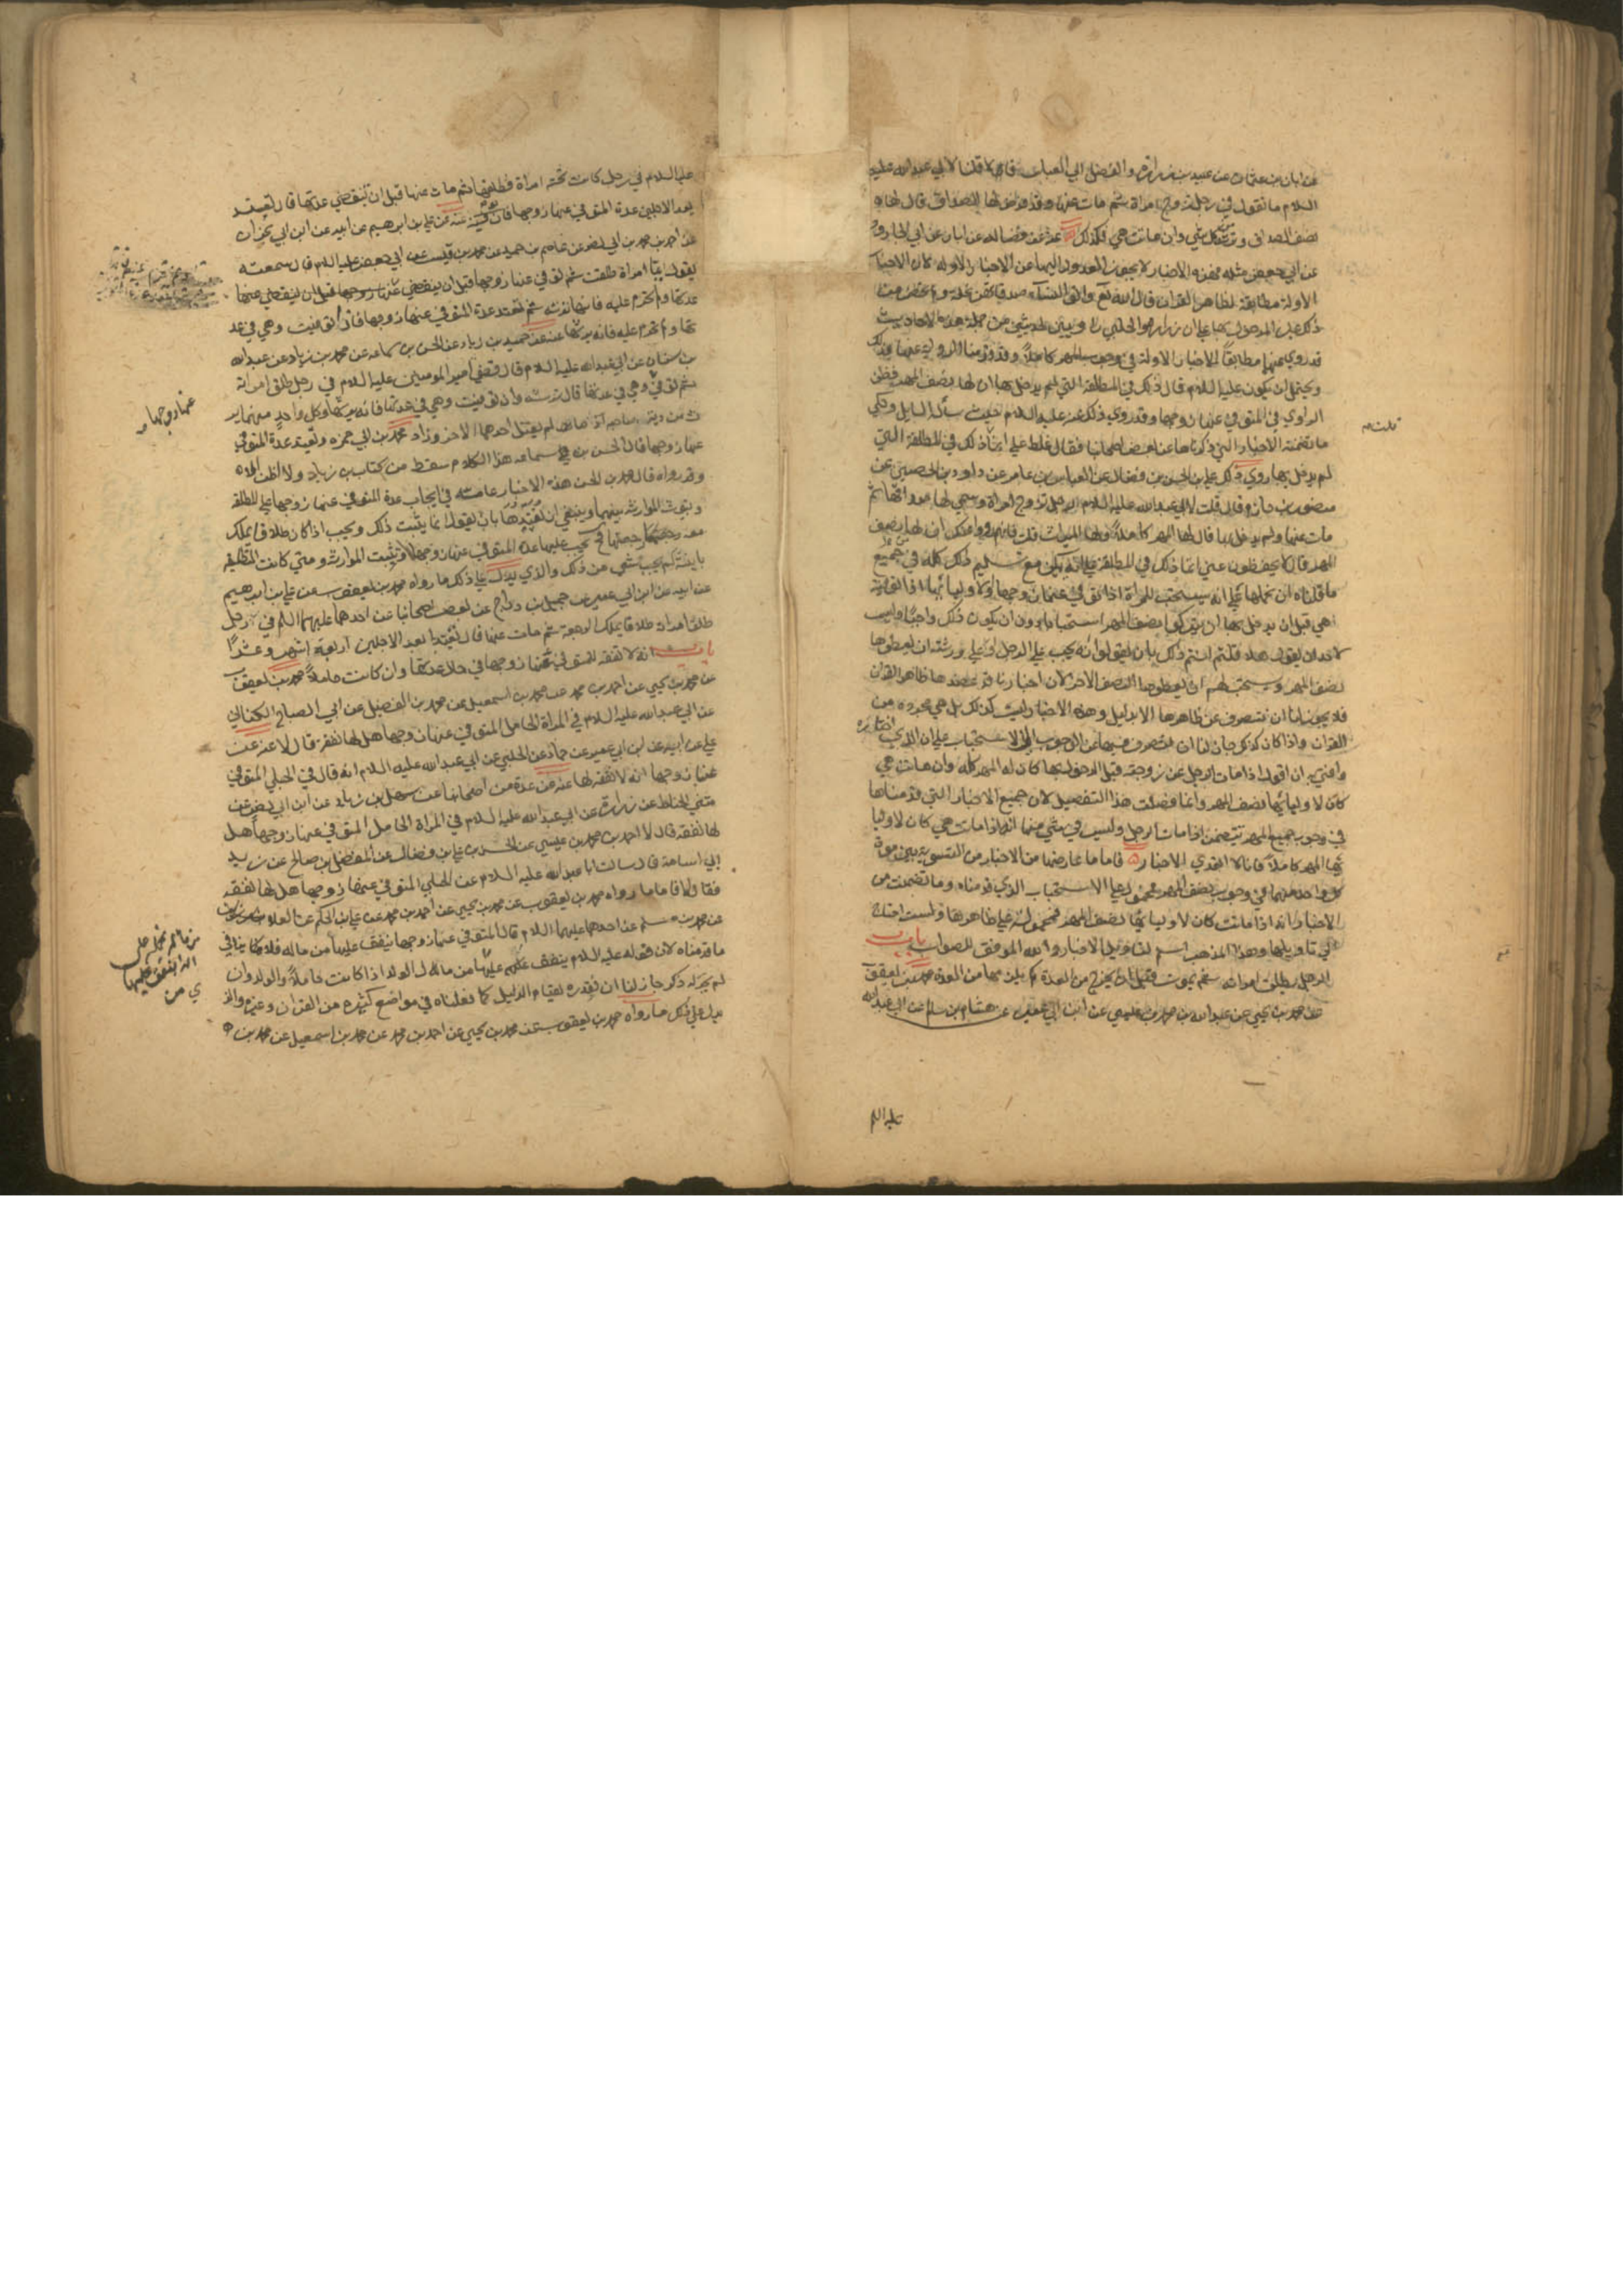 عن ابان بن عثمان عن عبيد بن زرارة والفضل ابي العباس قالا قلنا لابي عبد الله عليه
السلام ما تقول في رجل تزوج امراة ثم مات عنها وقد فرض لها الصداق قال لها
نصف الصداق وترثه من كل شي وان ماتت هي فكذلك عنه عن فضاله عن ابان عن ابي الجارود
عن ابي جعفر مثله فهذه الاخبار لا يجوز العدول اليها عن الاخبار الاوله لان الاخبار
الاولة مطابقة لظاهر القران قال الله تع واتوا النساء صدقاتهن نحلة
ذلك قبل المدخول بها علي ان زراره والحلبي راويين لحديثي من جملة هذه الاحاديث
قد روي عنهما مطابقا للاخبار الاولة في وجوب المهر كاملا وقد قدمنا الرواية عنهما بذلك
ويحتمل ان يكون عليه السلام قال ذلك في المطلقة التي لم يدخل بها ان لها نصف المهر فظن
الراوي في المتوفي عنها زوجها وقد روي ذلك عنه عليه السلام حيث سأله السايل وحكي
ما تضمنته الاخبار التي ذكرناها عن بعض اصحابنا فقال غلط علي انما ذلك في المطلقة التي
لم يدخل بها روي ذلك علي بن الحسن بن فضال عن العباس بن عامر عن داود بن الحصين عن
منصور بن حازم قال قلت لابي عبد الله عليه السلام رجل تزوج امراة وسمي لها صداقها ثم
مات عنها ولم يدخل بها قال لها المهر كاملا ولها الميراث قلت فانهم رووا عنك ان لها نصف
المهر قال لا يحفظون عني انما ذلك في المطلقة علي انه يمكن مع تسليم ذلك كله في جميع
ما قلناه ان نحملها علي انه يستحب للمراة اذا توفي عنها زوجها ولاوليائها اذا توفيت
هي قبل ان يدخل بها ان يتركوا نصف المهر استحبابا دون ان يكون ذلك واجبا وليس
لاحد ان يقول هلا قلتم انتم ذلك بان تقولوا انه يجب علي الرجل او علي ورثته ان يعطوها
نصف المهر ويستحب لهم ان يعطوها النصف الاخر لان اخبارنا قد عضدها ظاهر القران
فلا يجوز لنا ان ننصرف عن ظاهرها الا بدليل وهذه الاخبار ليست كذلك بل هي مجرده من
القران واذا كان كذلك جاز لنا ان نتصرف فيها من الوجوب الي الاستحباب علي ان الذي اختاره
وافتي به ان اقول اذا مات الرجل عن زوجته قبل الدخول بها كان لها المهر كله وان ماتت هي
كان لاوليائها نصف المهر وانما فصلت هذا التفصيل لان جميع الاخبار التي قدمناها
في وجوب جميع المهر يتضمن اذا مات الرجل وليس في شي منها انه اذا ماتت هي كان لاوليا
ئها المهر كاملا فانا لا اتعدي الاخبار فاما ما عارضها من الاخبار من التسوية بين موت
كل واحد منهما في وجوب نصف المهر فمحمول علي الاستحباب الذي قدمناه وما تضمنت من
الاخبار انه اذا ماتت كان لاوليائها نصف المهر فمحمولة علي ظاهرها ولست احتاج
الي تاويلها وهذا المذهب اسلم لتاويل الاخبار والله الموفق للصواب باب
الرجل يطلق امراته ثم يموت قبل ان تخرج من العدة كم يلزمها من العدة محمد بن يعقوب
عن محمد بن يحيي عن عبد الله بن محمد بن عيسي عن ابن ابي عمير عن هشام بن سالم عن ابي عبد الله
عليه السلم
عليه السلام في رجل كانت تحته امراة فطلقها ثم مات عنها قبل ان تنقضي عدتها قال تعتد
بعد الاجلين عدة المتوفي عنها زوجها عنه عن علي بن ابراهيم عن ابيه عن ابن ابي نجران
عن احمد بن محمد بن ابي نصر عن عاصم بن حميد عن محمد بن قيس عن ابي جعفر عليه السلام قال سمعته
يقول ايما امراة طلقت ثم توفي عنها زوجها قبل ان ينقضي عدتها
عدتها ولم تحرم عليه فانها ترثه ثم تعتد عدة المتوفي عنها زوجها فان توفيت وهي في عد
تها ولم تحرم عليه فانه يرثها عنه عن حميد بن زياد عن الحسن بن سماعه عن محمد بن زياد عن عبد الله
بن سنان عن ابي عبد الله عليه السلام قال قضي امير المومنين عليه السلام في رجل طلق امراته
ثم توفي وهي في عدتها قال ترثه وان توفيت وهي في عدتها فانه يرثها وكل واحد منهما ير
ث من دية صاحبه لم يقتل احدهما الاخر وزاد محمد بن ابي حمزه وتعتد عدة المتوفي
عنها زوجها قال الحسن بن سماعه هذا الكلام سقط من كتاب بن زياد ولا اظن الا
وقد رواه قال محمد بن الحسن هذه الاخبار عامة في ايجاب عدة المتوفي عنها زوجها علي المطلقة
وثبوت الموارثه بينهما وينبغي ان نقيدها بان نقول انما يثبت ذلك ويجب اذا كان طلاقا يملك
معه رجعتها فح يجب عليها عدة المتوفي عنها زوجها ويثبت الموارثه ومتي كانت التطليقة
باينة لم يجب شي من ذلك والذي يدل علي ذلك ما رواه محمد بن يعقوب عن علي بن ابراهيم
عن ابيه عن ابن ابي عمير عن جميل بن دراج عن بعض اصحابنا عن احدهما عليهما السلم في رجل
طلق امراته طلاقا يملك الرجعة ثم مات عنها قال تعتد بابعد الاجلين اربعة اشهر وعشرا
باب انه لا نفقه للمتوفي عنها زوجها في خلال عدتها وان كانت حاملا محمد بن يعقوب
عن محمد بن يحيي عن احمد بن محمد عن محمد بن اسمعيل عن محمد بن الفضيل عن ابي الصباح الكناني
عن ابي عبد الله عليه السلام في المراة الحامل المتوفي عنها زوجها هل لها نفقة قال لا عنه عن
علي عن ابيه عن ابن ابي عمير عن حماد عن الحلبي عن ابي عبد الله عليه السلام انه قال في الحبلي المتوفي
عنها زوجها انه لا نفقه لها عنه عن عدة من اصحابنا عن سهل بن زياد عن ابن ابي نصر عن
مثني الحناط عن زرارة عن ابي عبد الله عليه السلام في المراة الحامل المتوفي عنها زوجها هل
لها نفقه قال لا احمد بن محمد بن عيسي عن الحسن بن علي بن فضال عن المفضل بن صالح عن زيد
ابي اسامة قال سالت ابا عبد الله عليه السلام عن الحبلي المتوفي عنها زوجها هل لها نفقه
فقال لا فاما ما رواه محمد بن يعقوب عن محمد بن يحيي عن احمد بن محمد عن علي بن الحكم عن العلا
عن محمد بن مسلم عن احدهما عليهما السلام قال المتوفي عنها زوجها ينفق عليها من ماله فلا ينافي
ما قدمناه لان قوله عليه السلام ينفق عليها من ماله اي مال الولد اذا كانت حاملا والولد وان
لم يجر له ذكر جاز لنا ان نقدره لقيام الدليل كما فعلناه في مواضع كثيره من القران وغيره والذ
يدل علي ذلك ما رواه محمد بن يعقوب عن محمد بن يحيي عن احمد بن محمد عن محمد بن اسمعيل عن محمد بن
عنها زوجها